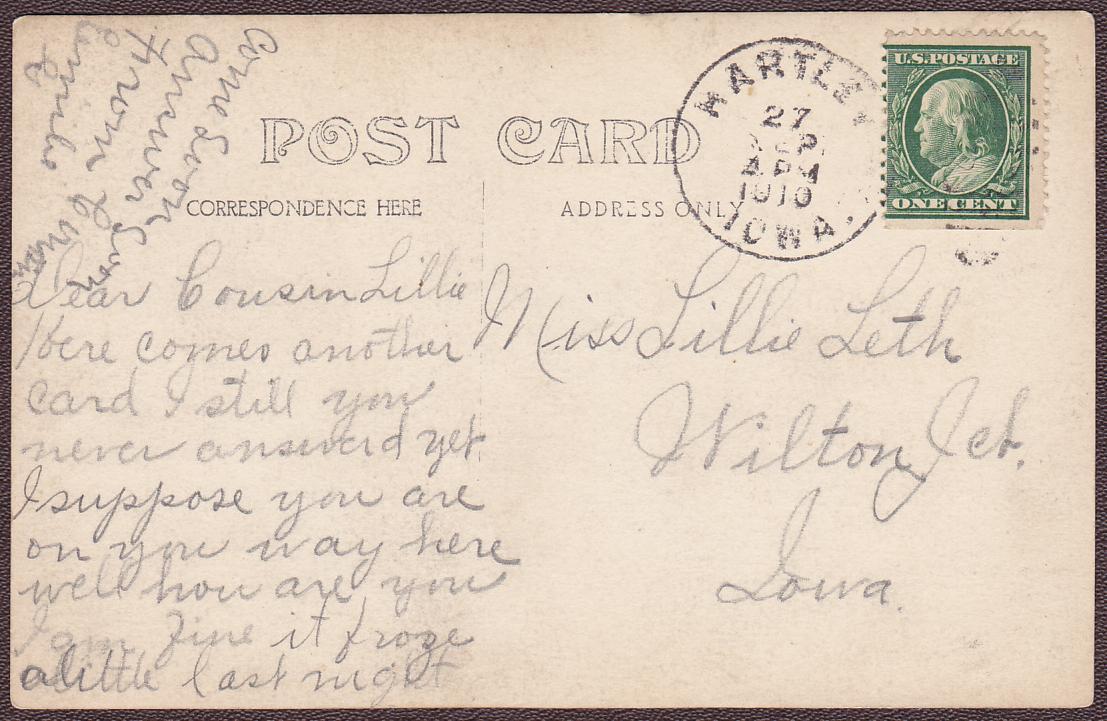 POST CARD
CORRESPONDENCE HERE
ADDRESS ONLY
HARTLEY
27
SEP
PM
1910
IOWA.
U.S. POSTAGE
ONE CENT
Dear Cousin Lillie
Here comes another
card I still you
never answerd yet
I suppose you are
on you way here
well hou are you
I am fine it froze
a little last night
Miss Lillie Leth
Wilton Jct.
Iowa.
soon
answer
From